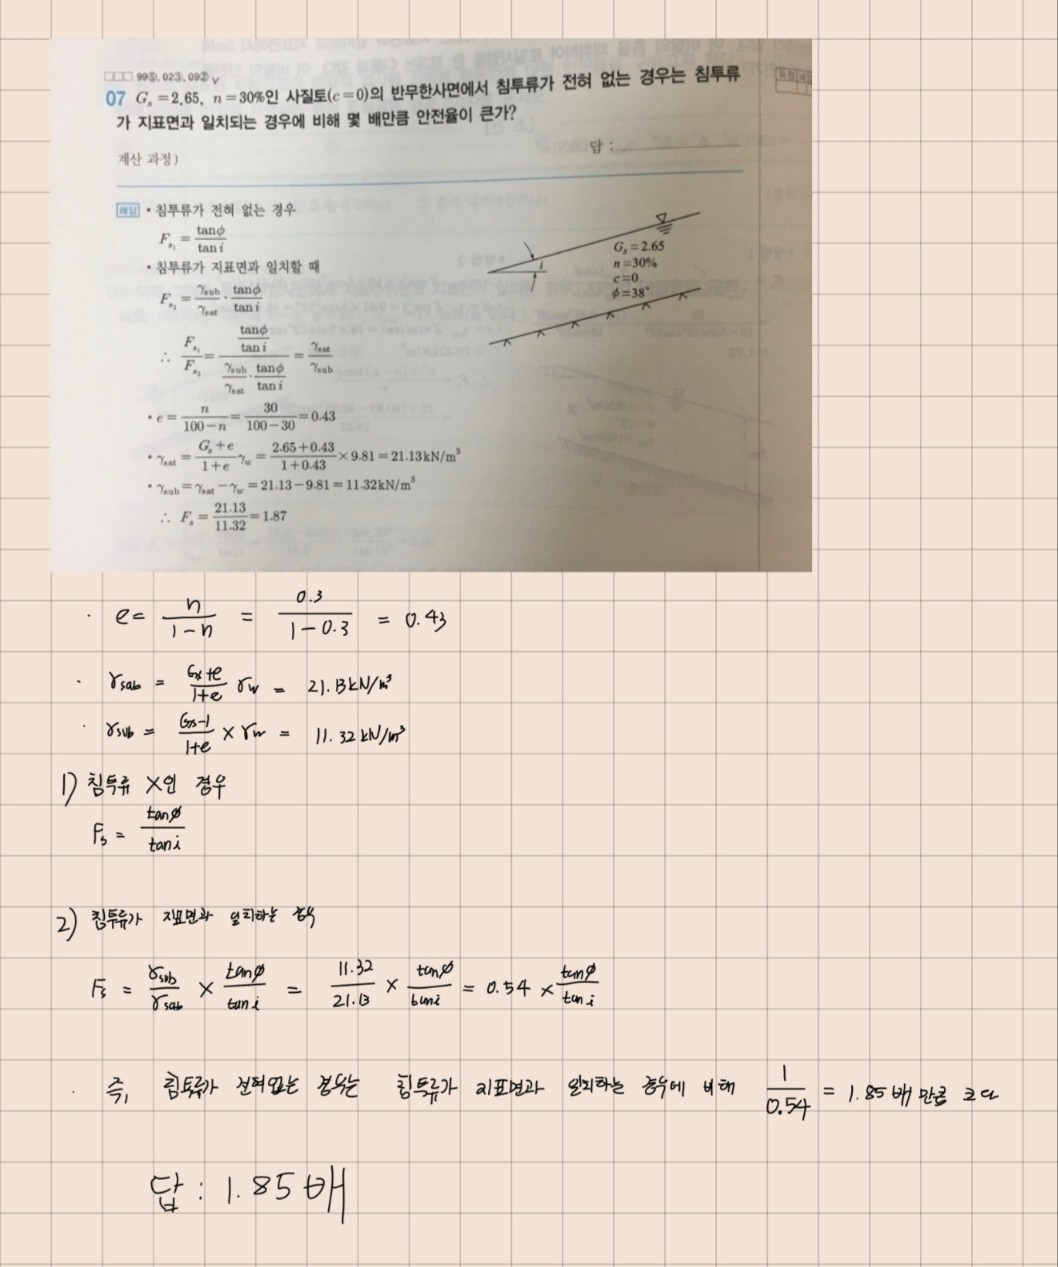 □□□ 99⑤, 02③, 09② ✓
07 Gₛ=2.65, n=30%인 사질토(c=0)의 반무한사면에서 침투류가 전혀 없는 경우는 침투류
가 지표면과 일치되는 경우에 비해 몇 배만큼 안전율이 큰가?
계산 과정)
답 :
해답 • 침투류가 전혀 없는 경우
F_{s₁} = tanϕ / tan i
• 침투류가 지표면과 일치할 때
F_{s₂} = γ_sub / γ_sat · tanϕ / tan i
∴ F_{s₁} / F_{s₂} = (tanϕ / tan i) / (γ_sub / γ_sat · tanϕ / tan i) = γ_sat / γ_sub
• e = n / (100−n) = 30 / (100−30) = 0.43
• γ_sat = (Gₛ+e) / (1+e) γ_w = (2.65+0.43) / (1+0.43) × 9.81 = 21.13kN/m³
• γ_sub = γ_sat − γ_w = 21.13−9.81 = 11.32kN/m³
∴ Fₛ = 21.13 / 11.32 = 1.87
i
Gₛ=2.65
n=30%
c=0
ϕ=38°
· e = n / (1−n) = 0.3 / (1−0.3) = 0.43
· γsat = (Gs+e) / (1+e) γw = 21.13 kN/m³
· γsub = (Gs−1) / (1+e) × γw = 11.32 kN/m³
1) 침투류 X인 경우
Fs = tanϕ / tan i
2) 침투류가 지표면과 일치하는 경우
Fs = γsub / γsat × tanϕ / tan i = 11.32 / 21.13 × tanϕ / tan i = 0.54 × tanϕ / tan i
· 즉, 침투류가 전혀없는 경우는 침투류가 지표면과 일치하는 경우에 비해 1 / 0.54 = 1.85배 만큼 크다
답 : 1.85배